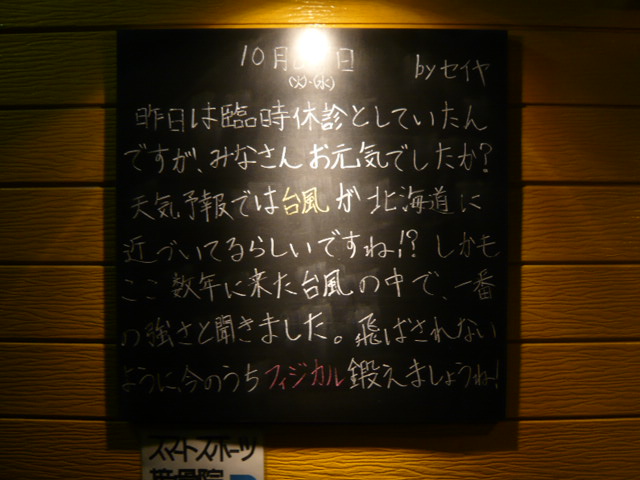 10月 日 byセイヤ
(火)・(水)
昨日は臨時休診としていたん
ですが、みなさんお元気でしたか?
天気予報では台風が北海道に
近づいてるらしいですね!? しかも
ここ数年に来た台風の中で、一番
の強さと聞きました。飛ばされない
ように、今のうちフィジカル鍛えましょうね!
スマートスポーツ
接骨院